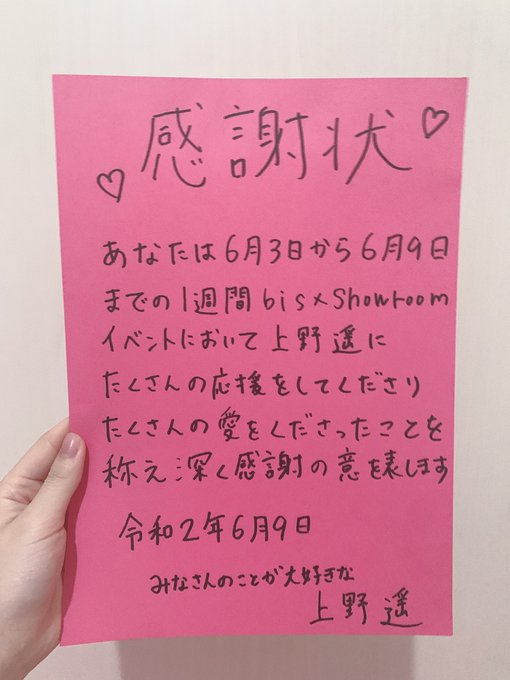 ♡感謝状♡
あなたは6月3日から6月9日
までの1週間bis×Showroom
イベントにおいて上野遥に
たくさんの応援をしてくださり
たくさんの愛をくださったことを
称え深く感謝の意を表します
令和2年6月9日
みなさんのことが大好きな
上野遥